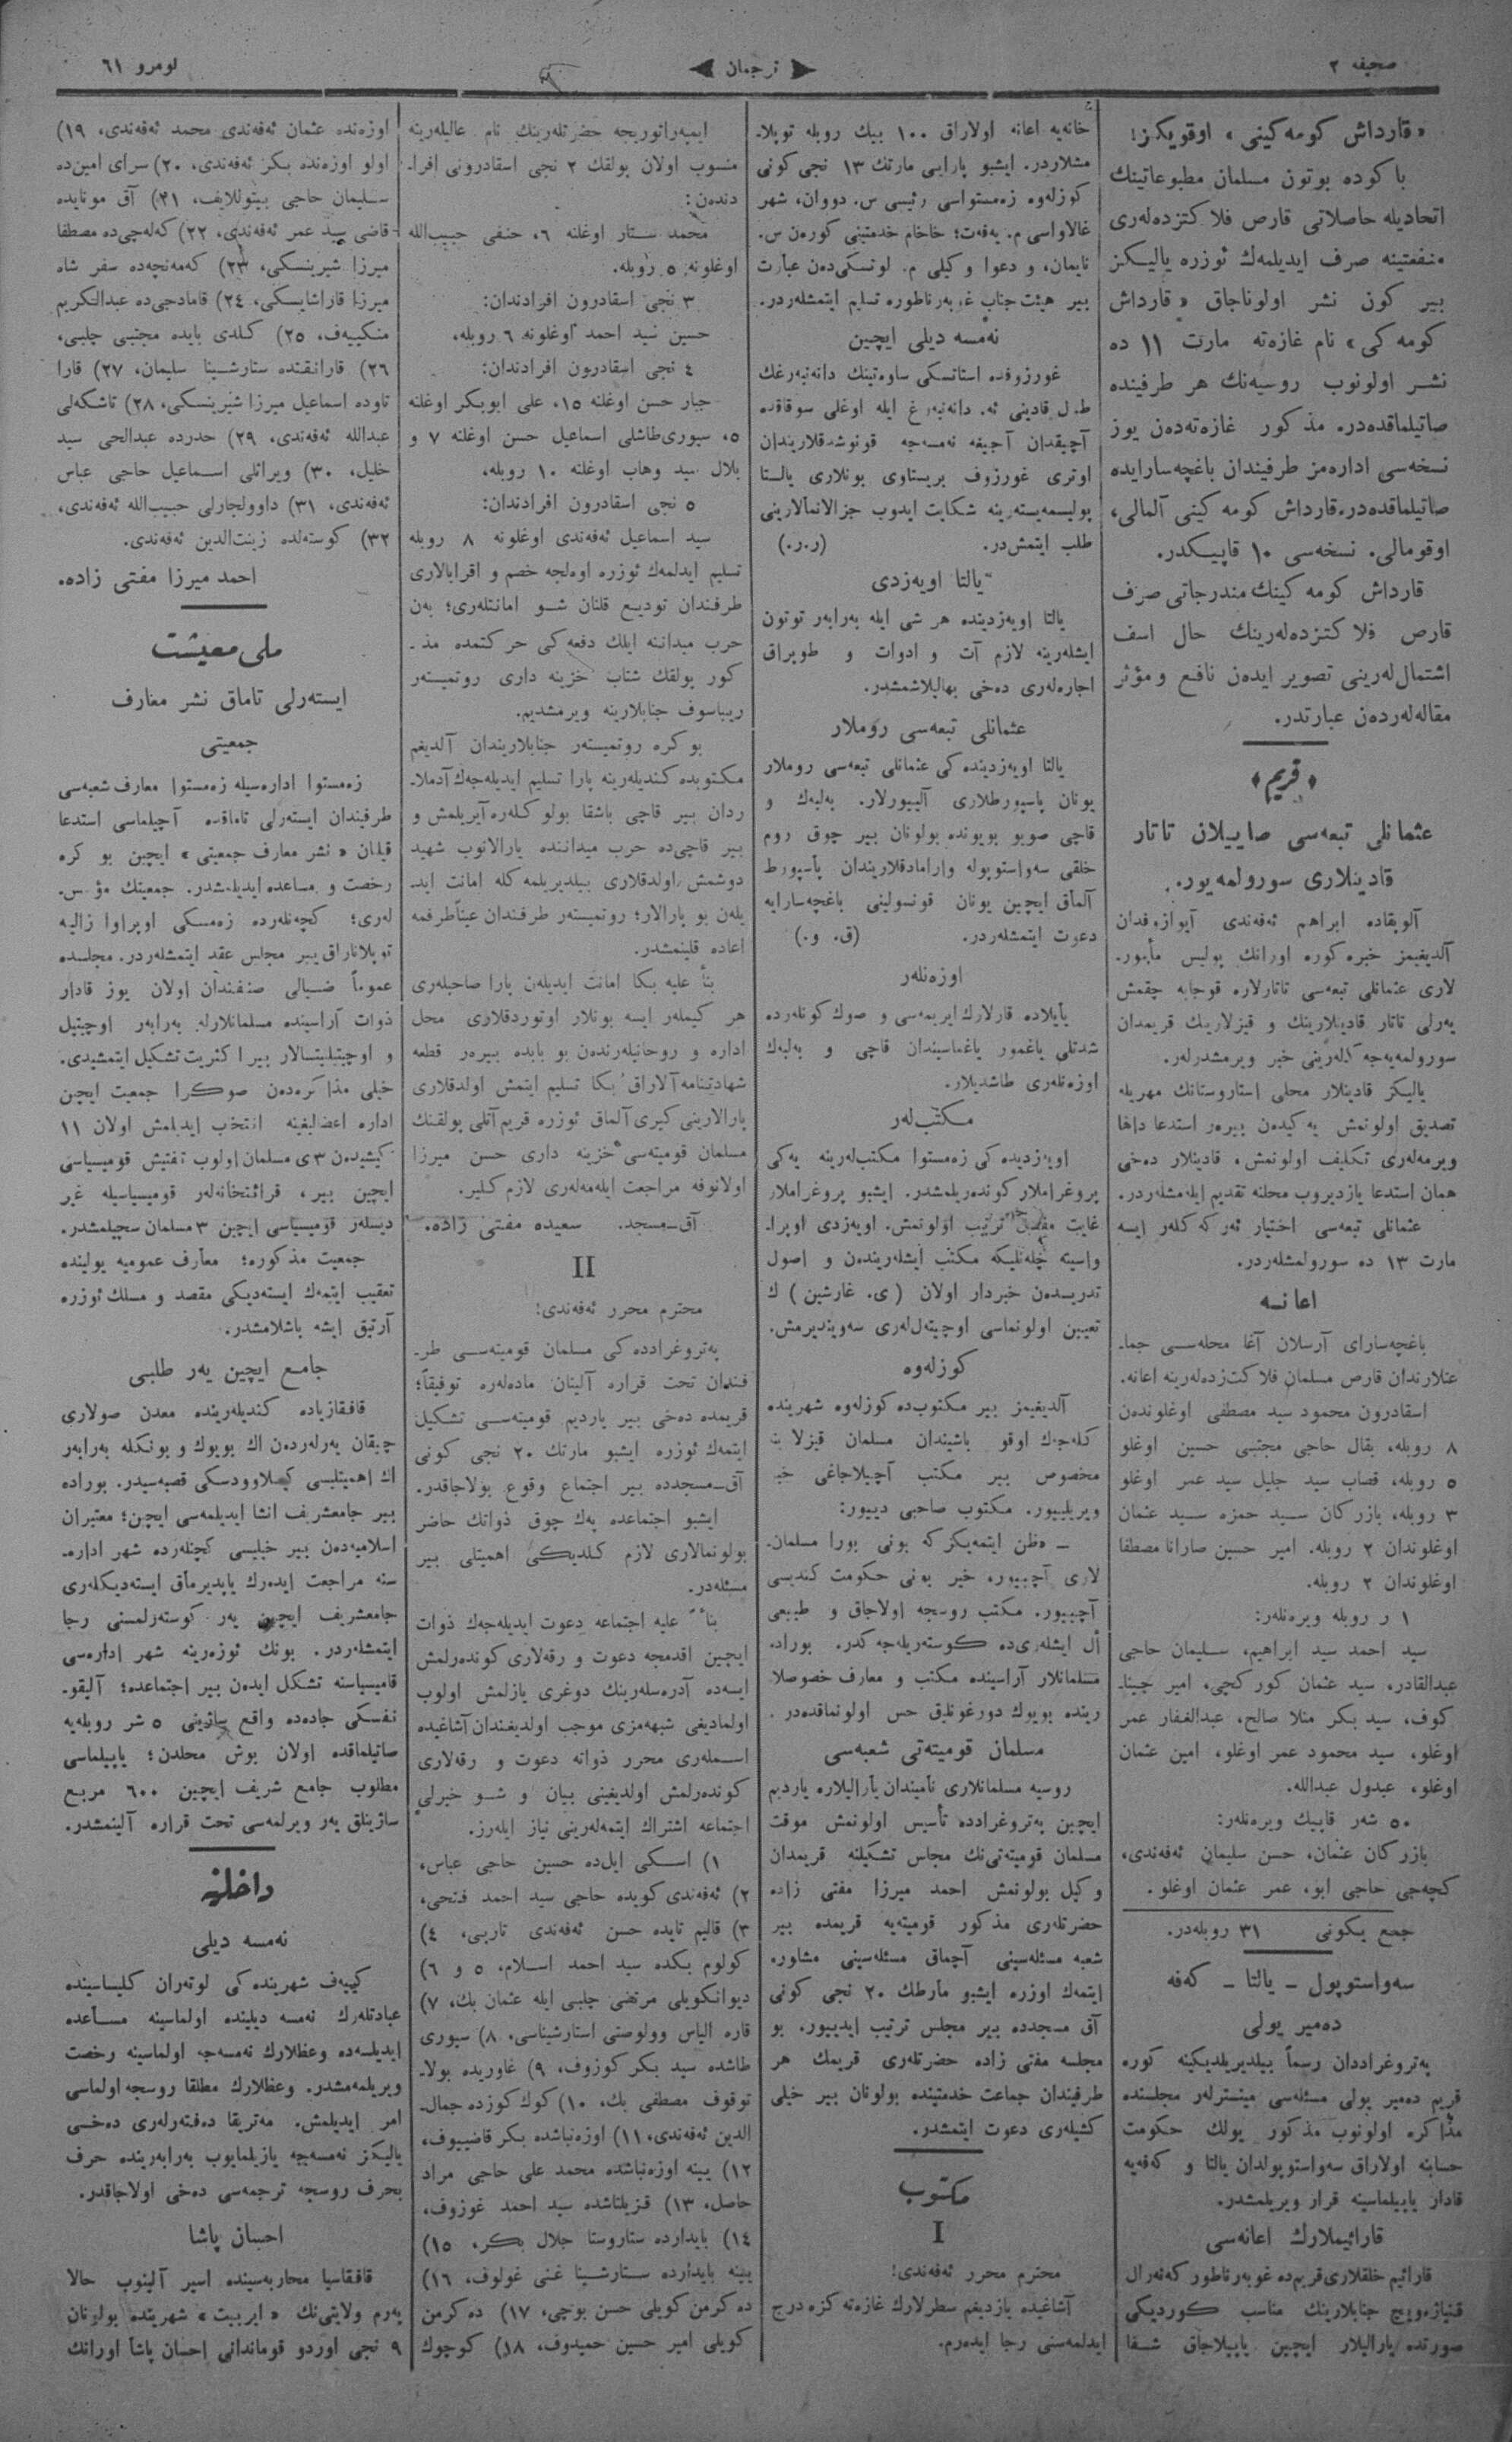 صحیفه ٢
ترجمان
نومرو ٦١
« قارداش كومه‌كینی » اوقویكز!
باكوده بوتون مسلمان مطبوعاتینك
اتحادیله حاصلاتی قارص فلاكتزده‌له‌ری
منفعتینه صرف ایدیلمه‌ك ئوزره یالیكز
بیر كون نشر اولوناجاق « قارداش
كومه‌كی » نام غازه‌ته مارت ١١ ده
نشر اولونوب روسیه‌نك هر طرفینده
صاتیلماقده‌در. مذكور غازه‌ته‌ده‌ن یوز
نسخه‌سی اداره‌مز طرفیندان باغچه‌سارایده
صاتیلماقده‌در. قارداش كومه‌كینی آلمالی،
اوقومالی. نسخه‌سی ١٠ قاپیكدر.
قارداش كومه‌كینك مندرجاتی صرف
قارص فلاكتزده‌له‌رینك حال اسف
اشتمال‌له‌رینی تصویر ایده‌ن نافع و مؤثر
مقاله‌له‌رده‌ن عبارتدر.
﴿ قریم ﴾
عثمانلی تبعه‌سی صاییلان تاتار
قادینلاری سورولمه‌یور.
آلوپقاده ابراهم ئه‌فه‌ندی آیوازوفدان
آلدیغیمز خبره كوره اورانك پولیس مأمور-
لاری عثمانلی تبعه‌سی تاتارلاره قوجایه چقمش
یه‌رلی تاتار قادینلارینك و قیزلارینك قریمدان
سورولمه‌یه‌جه‌كله‌رینی خبر ویرمشدرله‌ر.
یالیكز قادینلار محلی استاروستانك مهریله
تصدیق اولونمش یه‌كیده‌ن بیره‌ر استدعا داها
ویرمه‌له‌ری تكلیف اولونمش، قادینلار ده‌خی
همان استدعا یازدیروب محلنه تقدیم ایله‌مشله‌ردر.
عثمانلی تبعه‌سی اختیار ئه‌ركه‌كله‌ر ایسه
مارت ١٣ ده سورولمشله‌ردر.
اعانه
باغچه‌سارای آرسلان آغا محله‌سی جما-
عتلارندان قارص مسلمان فلاكت‌زده‌له‌رینه اعانه.
اسقادرون محمود سید مصطفی اوغلونده‌ن
٨ روبله، بقال حاجی مجتبی حسین اوغلو
٥ روبله، قصاب سید جلیل سید عمر اوغلو
٣ روبله، بازركان سید حمزه سید عثمان
اوغلوندان ٢ روبله. امیر حسین صارانا مصطفا
اوغلوندان ٢ روبله.
١ ر روبله ویره‌نله‌ر:
سید احمد سید ابراهیم، سلیمان حاجی
عبدالقادر، سید عثمان كوركچی، امیر چینا-
كوف، سید بكر منلا صالح، عبدالغفار عمر
اوغلو، سید محمود عمر اوغلو، امین عثمان
اوغلو، عبدول عبدالله.
٥٠ شه‌ر قاپیك ویره‌نله‌ر:
بازركان عثمان، حسن سلیمان ئه‌فه‌ندی،
كچه‌جی حاجی ابو، عمر عثمان اوغلو.
جمع یكونی ٣١ روبله‌در.
سه‌واستوپول ـ یالتا ـ كه‌فه
ده‌میر یولی
په‌تروغراددان رسماً بیلدیریلدیكینه كوره
قریم ده‌میر یولی مسئله‌سی مینسترله‌ر مجلسنده
مذاكره اولونوب مذكور یولك حكومت
حسابنه اولاراق سه‌واستوپولدان یالتا و كه‌فه‌یه
قادار یاپیلماسینه قرار ویریلمشدر.
قارائیملارك اعانه‌سی
قارائیم خلقلاری قریم‌ده غوبه‌رناطور كه‌نه‌رال
قنیازه‌ویچ جنابلارینك مناسب كوردیكی
صورتده یارالیلار ایچین یاپیلاجاق شفا
خانه‌یه اعانه اولاراق ١٠٠ بیك روبله توپلا-
مشلاردر. ایشبو پارایی مارتك ١٣ نجی كونی
كوزله‌وه زه‌مستواسی رئیسی س. دووان، شهر
غالاواسی م. یه‌فه‌ت؛ خاخام خدمتینی كوره‌ن س.
نایمان، و دعوا وكیلی م. لوتسكی‌ده‌ن عبارت
بیر هیئت جناب غوبه‌رناطوره تسلیم ایتمشله‌ردر.
نه‌مسه دیلی ایچین
غورزوفده استاتسكی ساوه‌تینك دانه‌نبه‌رغك
ط.ل قادینی ئه. دانه‌نبه‌رغ ایله اوغلی سوقاقده
آچیقدان آچیغه نه‌مسه‌جه قونوشدقلاریندان
اوتری غورزوف بریستاوی بونلاری یالتا
پولیسمه‌یسته‌رینه شكایت ایدوب جزالانمالارینی
طلب ایتمش‌در. (ر.ر.)
یالتا اویه‌زدی
یالتا اویه‌زدینده هر شی ایله به‌رابه‌ر توتون
ایشله‌رینه لازم آت و ادوات و طوپراق
اجاره‌له‌ری ده‌خی بهالیلاشمشدر.
عثمانلی تبعه‌سی روملار
یالتا اویه‌زدینده‌كی عثمانلی تبعه‌سی روملار
یونان پاسپورطلاری آلییورلار. به‌لبه‌ك و
قاچی صویو بویونده بولونان بیر چوق روم
خلقی سه‌واستوپوله وارامادقلاریندان پاسپورط
آلماق ایچین یونان قونسولینی باغچه‌سارایه
دعوت ایتمشله‌ردر. (ق. و.)
اوزه‌نله‌ر
یایلاده قارلارك ایریمه‌سی و صوك كونله‌رده
شدتلی یاغمور یاغماسیندان قاچی و به‌لبه‌ك
اوزه‌نله‌ری طاشدیلار.
مكتب‌له‌ر
اویه‌زدیده‌كی زه‌مستوا مكتب‌له‌رینه یه‌كی
پروغراملار كونده‌ریلمشدر. ایشبو پروغراملار
غایت مفصل ترتیب اولونمش. اویه‌زدی اوپرا-
واسینه چله‌نلیكه مكتب ایشله‌رینده‌ن و اصول
تدریسده‌ن خبردار اولان (ی. غارشین) ك
تعیین اولونماسی اوچیته‌ل‌له‌ری سه‌ویندیرمش.
كوزله‌وه
آلدیغیمز بیر مكتوب‌ده كوزله‌وه شهرینده
كله‌جه‌ك اوقو باشیندان مسلمان قیزلارینه
مخصوص بیر مكتب آچیلاجاغی خبر
ویریلییور. مكتوب صاحبی دییور:
ـ ظن ایتمه‌یكز كه بونی بورا مسلمان-
لاری آچییور، خیر بونی حكومت كندیسی
آچییور. مكتب روسجه اولاجاق و طبیعی
أل ایشله‌ری‌ده كوسته‌ریله‌جه‌كدر. بوراده
مسلمانلار آراسینده مكتب و معارف خصوصلا
رینده بویوك دورغونلق حس اولونماقده‌در.
مسلمان قومیته‌تی شعبه‌سی
روسیه مسلمانلاری نامیندان یارالیلاره یاردیم
ایچین په‌تروغرادده تأسیس اولونمش موقت
مسلمان قومیته‌تی‌نك مجلس تشكیلنه قریمدان
وكیل بولونمش احمد میرزا مفتی زاده
حضرتله‌ری مذكور قومیته‌یه قریمده بیر
شعبه مسئله‌سینی آچماق مسئله‌سینی مشاوره
ایتمه‌ك اوزره ایشبو مارطك ٢٠ نجی كونی
آق مسجدده بیر مجلس ترتیب ایدییور. بو
مجلسه مفتی زاده حضرتله‌ری قریمك هر
طرفیندان جماعت خدمتینده بولونان بیر خیلی
كشیله‌ری دعوت ایتمشدر.
مكتوب
I
محترم محرر ئه‌فه‌ندی!
آشاغیده یازدیغم سطرلارك غازه‌ته‌كزه درج
ایدلمه‌سنی رجا ایده‌رم.
ایمپه‌راتوریچه حضرتله‌رینك نام عالیله‌رینه
منسوب اولان پولقك ٢ نجی اسقادرونی افرا-
دنده‌ن:
محمد ستار اوغلنه ٦، حنفی حبیب‌الله
اوغلونه ٥ روبله.
٣ نجی اسقادرون افرادندان:
حسین سید احمد اوغلونه ٦ روبله،
٤ نجی اسقادرون افرادندان:
جبار حسن اوغلنه ١٥، علی ابوبكر اوغلنه
٥، سیوری‌طاشلی اسماعیل حسن اوغلنه ٧ و
بلال سید وهاب اوغلنه ١٠ روبله،
٥ نجی اسقادرون افرادندان:
سید اسماعیل ئه‌فه‌ندی اوغلونه ٨ روبله
تسلیم ایدلمه‌ك ئوزره اوه‌لجه خصم و اقربالاری
طرفندان تودیع قلنان شو امانتله‌ری؛ به‌ن
حرب میداننه ایلك دفعه‌كی حركتمده مذ-
كور پولقك شتاب خزینه داری روتمیسته‌ر
ریباسوف جنابلارینه ویرمشدیم.
بوكره روتمیسته‌ر جنابلاریندان آلدیغم
مكتوبده كندیله‌رینه پارا تسلیم ایدیله‌جه‌ك آدملا-
ردان بیر قاچی باشقا بولوكله‌ره آیریلمش و
بیر قاچی‌ده حرب میداننده یارالانوب شهید
دوشمش اولدقلاری بیلدیریلمه‌كله امانت اید-
یله‌ن بو پارالار؛ روتمیسته‌ر طرفندان عیناً طرفمه
اعاده قلینمشدر.
بنأ علیه بكا امانت ایدیله‌ن پارا صاحبله‌ری
هر كیمله‌ر ایسه بونلار اوتوردقلاری محل
اداره و روحانیله‌رنده‌ن بو بابده بیره‌ر قطعه
شهادتنامه آلاراق بكا تسلیم ایتمش اولدقلاری
پارالارینی كیری آلماق ئوزره قریم آتلی پولقنك
مسلمان قومیته‌سی خزینه داری حسن میرزا
اولانوفه مراجعت ایله‌مه‌له‌ری لازم كلیر.
آق‌ـ‌مسجد. سعیده مفتی زاده.
II
محترم محرر ئه‌فه‌ندی!
په‌تروغرادده‌كی مسلمان قومیته‌سی طر-
فندان تحت قراره آلینان ماده‌له‌ره توفیقاً؛
قریمده ده‌خی بیر یاردیم قومیته‌سی تشكیل
ایتمه‌ك ئوزره ایشبو مارتك ٢٠ نجی كونی
آق‌ـ‌مسجدده بیر اجتماع وقوع بولاجاقدر.
ایشبو اجتماعده په‌ك چوق ذواتك حاضر
بولونمالاری لازم كلدیكی اهمیتلی بیر
مسئله‌در.
بنأ علیه اجتماعه دعوت ایدیله‌جه‌ك ذوات
ایچین اقدمجه دعوت و رقه‌لاری كونده‌رلمش
ایسه‌ده آدره‌سله‌رینك دوغری یازلمش اولوب
اولمادیغی شبهه‌مزی موجب اولدیغندان آشاغیده
اسمله‌ری محرر ذواته دعوت و رقه‌لاری
كونده‌رلمش اولدیغینی بیان و شو خیرلی
اجتماعه اشتراك ایتمه‌له‌رینی نیاز ایله‌رز.
١) اسكی ایل‌ده حسین حاجی عباس،
٢) ئه‌فه‌ندی كویده حاجی سید احمد فتحی،
٣) قالیم تایده حسن ئه‌فه‌ندی تاربی، ٤)
كولوم بكده سید احمد اسلام، ٥ و ٦)
دیوانكویلی مرتضی چلبی ایله عثمان بك، ٧)
قاره الیاس وولوصتی استارشیناسی، ٨) سیوری
طاشده سید بكر كوزوف، ٩) غاوریده بولا-
توقوف مصطفی بك، ١٠) كوك كوزده جمال-
الدین ئه‌فه‌ندی، ١١) اوزه‌نباشده بكر قاضییوف،
١٢) یینه اوزه‌نباشده محمد علی حاجی مراد
حاصل، ١٣) قزیلتاشده سید احمد غوزوف،
١٤) بایدارده ستاروستا جلال بكر، ١٥)
یینه بایدارده ستارشینا غنی غولوف، ١٦)
ده‌كرمن كویلی حسن بوجی، ١٧) ده‌كرمن
كویلی امیر حسین حمیدوف، ١٨) كوچوك
اوزه‌نده عثمان ئه‌فه‌ندی محمد ئه‌فه‌ندی، ١٩)
اولو اوزه‌نده بكر ئه‌فه‌ندی، ٢٠) سرای امین‌ده
سلیمان حاجی بیتوللایف، ٢١) آق مونایده
قاضی سید عمر ئه‌فه‌ندی، ٢٢) كه‌له‌چی‌ده مصطفا
میرزا شیرینسكی، ٢٣) كه‌مه‌نچه‌ده سفر شاه
میرزا قاراشایسكی، ٢٤) قامادجی‌ده عبدالكریم
منكییه‌ف، ٢٥) كلدی بایده مجتبی چلبی،
٢٦) قارانقتده ستارشینا سلیمان، ٢٧) قارا
تاوده اسماعیل میرزا شیرینسكی، ٢٨) تاشكه‌لی
عبدالله ئه‌فه‌ندی، ٢٩) حدرده عبدالحی سید
خلیل، ٣٠) ویرائلی اسماعیل حاجی عباس
ئه‌فه‌ندی، ٣١) داوولجارلی حبیب‌الله ئه‌فه‌ندی،
٣٢) كوسته‌لده زینت‌الدین ئه‌فه‌ندی.
احمد میرزا مفتی زاده.
ملی معیشت
ایسته‌رلی تاماق نشر معارف
جمعیتی
زه‌مستوا اداره‌سیله زه‌مستوا معارف شعبه‌سی
طرفیندان ایسته‌رلی تاماقده آچیلماسی استدعا
قیلنان « نشر معارف جمعیتی » ایچین بو كره
رخصت و مساعده ایدیلمشدر. جمعیتك مؤسس-
له‌ری؛ كچه‌نله‌رده زه‌مسكی اوپراوا زالیه
توپلاناراق بیر مجلس عقد ایتمشله‌ردر. مجلسده
عموماً ضیالی صنفندان اولان یوز قادار
ذوات آراسینده مسلمانلارله به‌رابه‌ر اوچیتیل
و اوچیتیلنیتسالار بیر اكثریت تشكیل ایتمشیدی.
خیلی مذاكره‌ده‌ن صوكرا جمعیت ایچین
اداره اعضالیغینه انتخب ایدیلمش اولان ١١
كیشیدن ٣ی مسلمان اولوب تفتیش قومیسیاسی
ایچین بیر، قرائتخانه‌له‌ر قومیسیاسیله غیر
دیسله‌ر قومیسیاسی ایچین ٣ مسلمان سچیلمشدر.
جمعیت مذكوره؛ معارف عمومیه یولینده
تعقیب ایتمه‌ك ایسته‌دیكی مقصد و مسلك ئوزره
آرتیق ایشه باشلامشدر.
جامع ایچین یه‌ر طلبی
قافقازیاده كندیله‌رینده معدن صولاری
چیقان یه‌رله‌رده‌ن اك بویوك و بونكله به‌رابه‌ر
اك اهمیتلیسی كیسلاوودسكی قصبه‌سیدر. بوراده
بیر جامعشریف انشا ایدیلمه‌سی ایچن؛ معتبران
اسلامیه‌ده‌ن بیر خیلیسی كچنله‌رده شهر اداره-
سنه مراجعت ایده‌رك یاپدیرماق ایسته‌دیكله‌ری
جامعشریف ایچین یه‌ر كوسته‌رلمسنی رجا
ایتمشله‌ردر. بونك ئوزه‌رینه شهر اداره‌سی
قامیسیاسنه تشكل ایدن بیر اجتماعده؛ آلیقو-
نفسكی جاده‌ده واقع ساژینی ٥ شر روبله‌یه
صاتیلماقده اولان بوش محلدن؛ یاپیلماسی
مطلوب جامع شریف ایچین ٦٠٠ مربع
ساژینلق یه‌ر ویرلمه‌سی تحت قراره آلینمشدر.
داخلیه
نه‌مسه دیلی
كییه‌ف شهرینده‌كی لوته‌ران كلیساسینده
عبادتله‌رك نه‌مسه دیلینده اولماسینه مساعده
ایدیلسه‌ده وعظلارك نه‌مسه‌جه اولماسینه رخصت
ویریلمه‌مشدر. وعظلارك مطلقا روسجه اولماسی
امر ایدیلمش. مه‌تریقا ده‌فته‌رله‌ری ده‌خی
یالیكز نه‌مسه‌جه یازیلمایوب به‌رابه‌رینده حرف
بحرف روسجه ترجمه‌سی ده‌خی اولاجاقدر.
احسان پاشا
قافقاسیا محاربه‌سینده اسیر آلینوب حالا
په‌رم ولایتی‌نك « ایربیت » شهرینده بولونان
٩ نجی اوردو قوماندانی إحسان پاشا اورانك